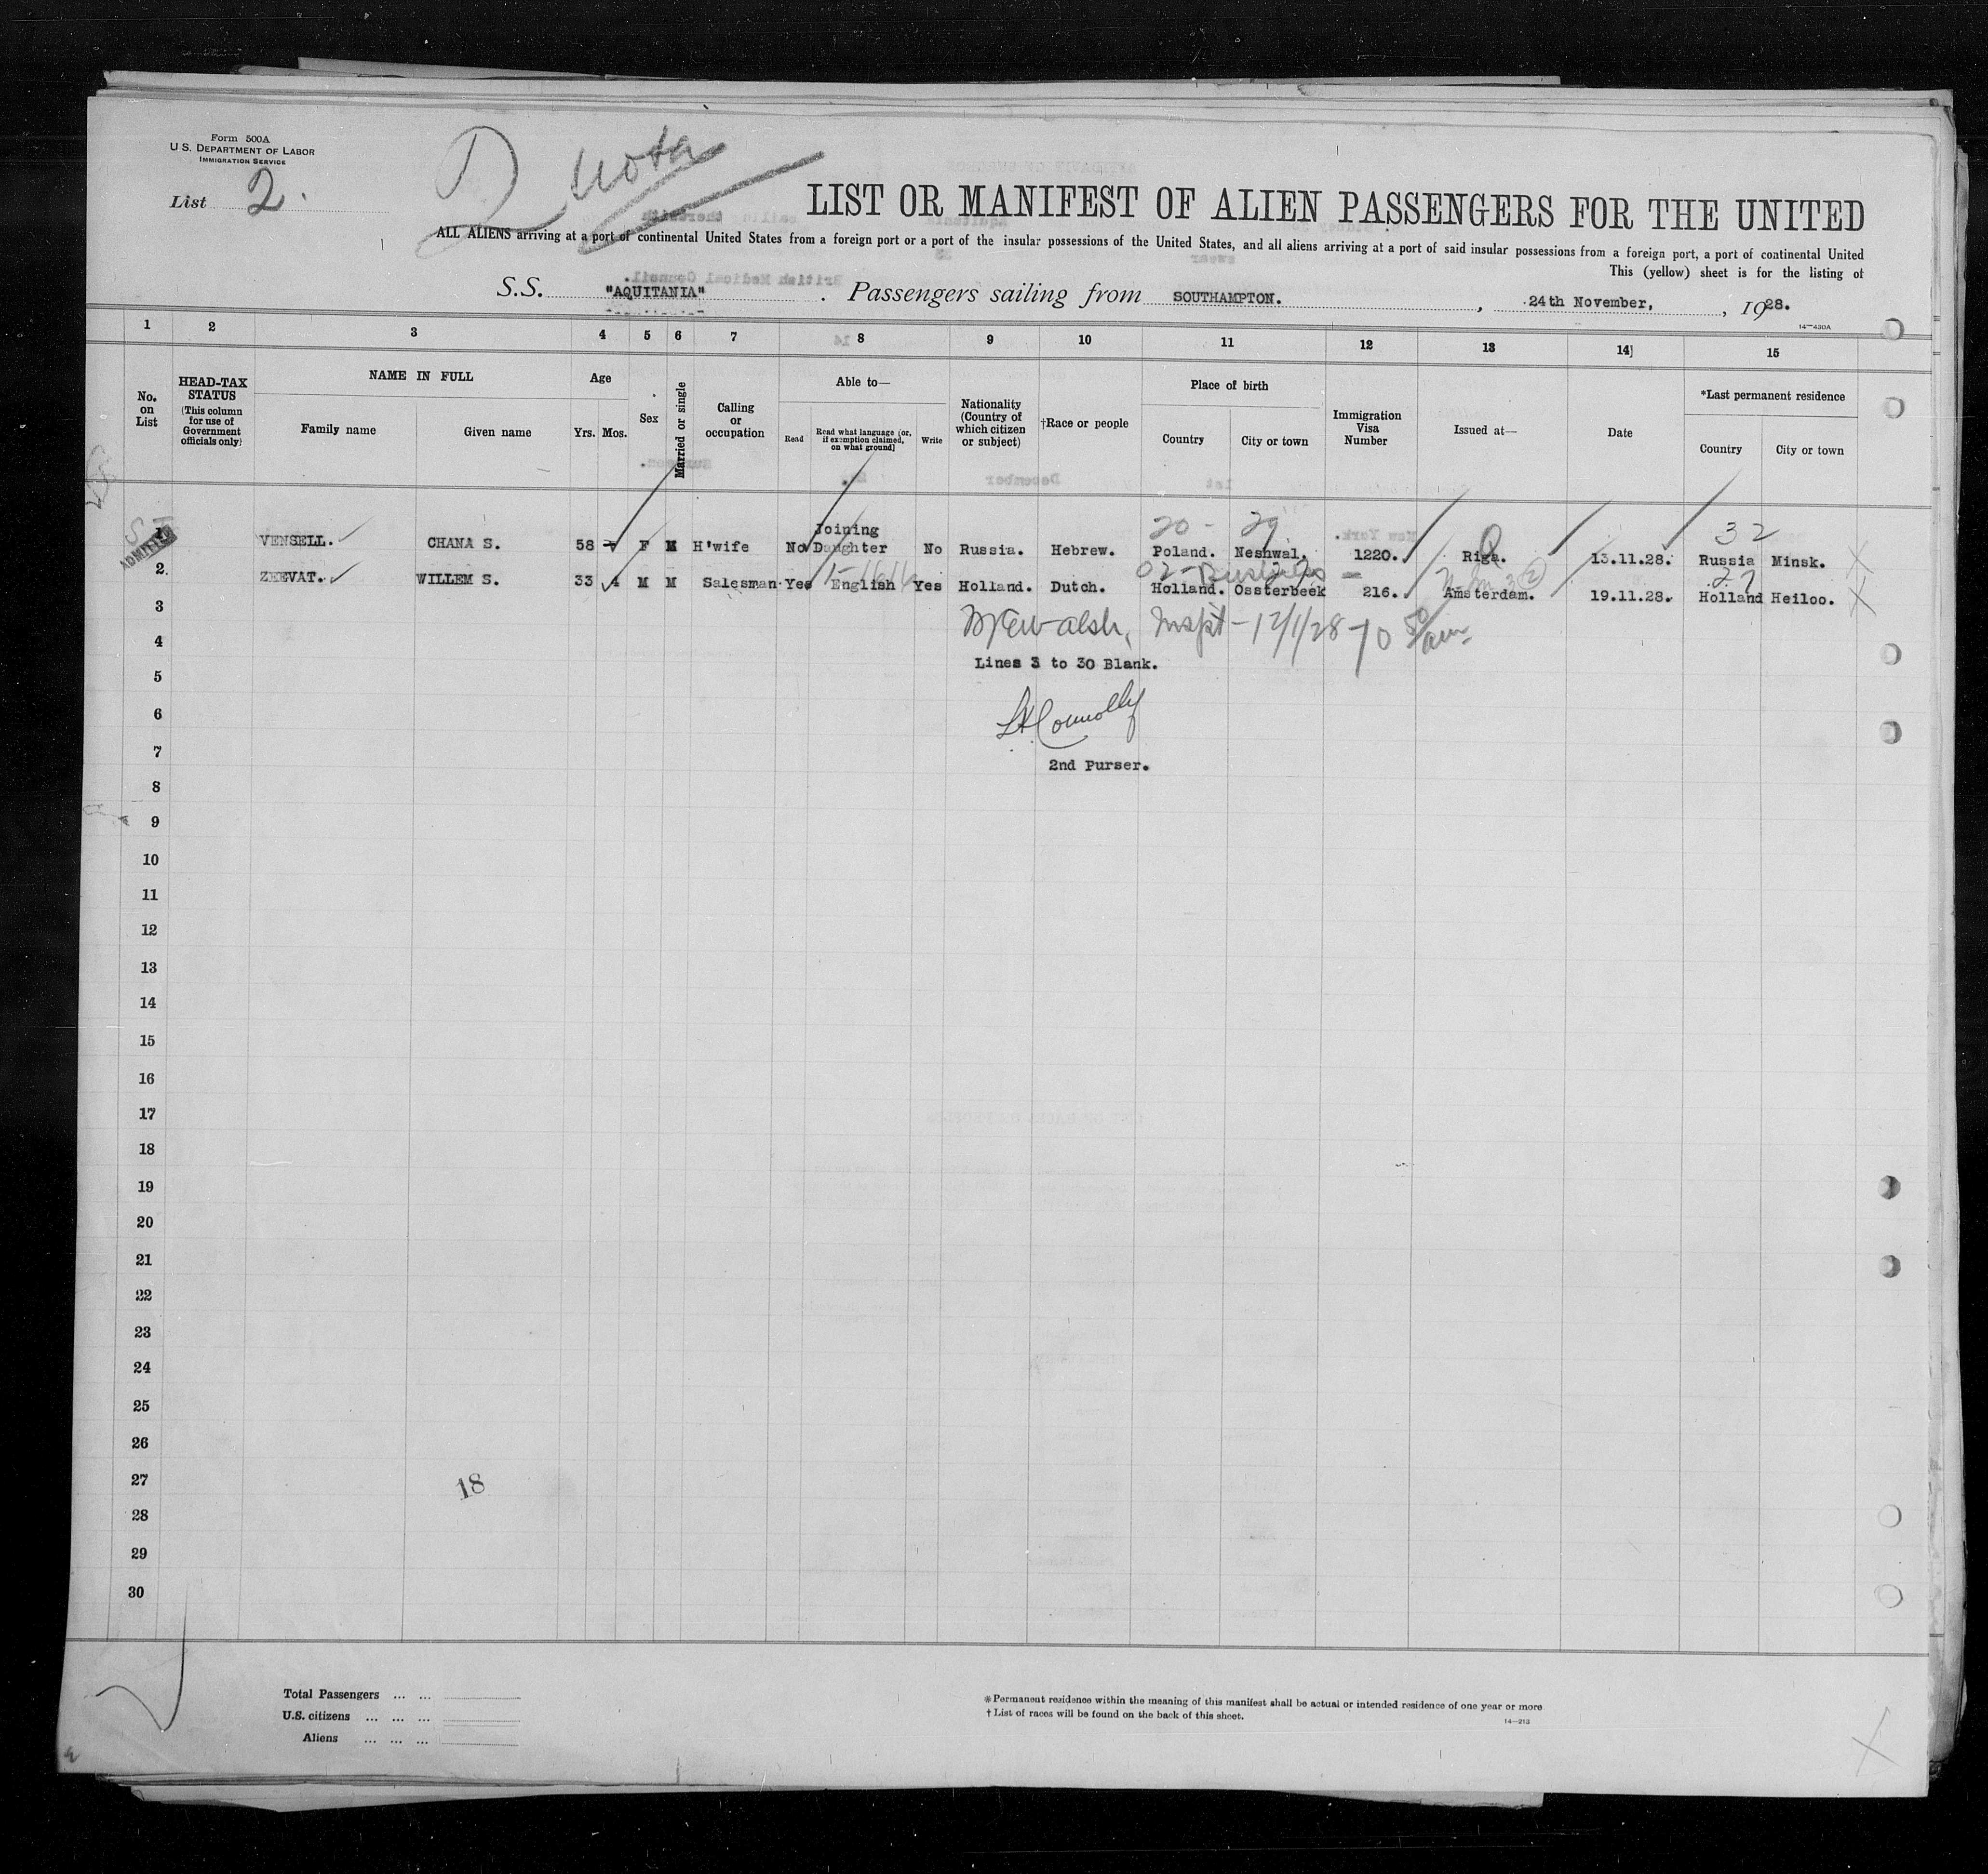 Form 500A
U. S. DEPARTMENT OF LABOR
IMMIGRATION SERVICE
List 2.
Quota
LIST OR MANIFEST OF ALIEN PASSENGERS FOR THE UNITED
ALL ALIENS arriving at a port of continental United States from a foreign port or a port of the insular possessions of the United States, and all aliens arriving at a port of said insular possessions from a foreign port, a port of continental United
This (yellow) sheet is for the listing of
S.S. "AQUITANIA" . Passengers sailing from SOUTHAMPTON. , 24th November, , 1928.
14—430A
1 2 3 4 5 6 7 8 9 10 11 12 13 14] 15
No. on List
HEAD-TAX STATUS (This column for use of Government officials only)
NAME IN FULL
Family name
Given name
Age
Yrs. Mos.
Sex
Married or single
Calling or occupation
Able to—
Read
Read what language [or, if exemption claimed, on what ground]
Write
Nationality (Country of which citizen or subject)
†Race or people
Place of birth
Country
City or town
Immigration Visa Number
Issued at—
Date
*Last permanent residence
Country
City or town
20 - 29 32
ADMITTED
1 VENSELL. CHANA S. 58 F M H'wife No Joining Daughter No Russia. Hebrew. Poland. Neshwal. 1220. Riga. 13.11.28. Russia Minsk.
27
2. ZEEVAT. WILLEM S. 33 4 M M Salesman Yes English Yes Holland. Dutch. Holland. Oosterbeek 216. Amsterdam. 19.11.28. Holland Heiloo.
3
Walsh, Inspt - 12/1/28 - 10 50/am
4
Lines 3 to 30 Blank.
5
6
Connolly
7
2nd Purser.
8
9
10
11
12
13
14
15
16
17
18
19
20
21
22
23
24
25
26
27
18
28
29
30
Total Passengers ... ...
U.S. citizens ... ... ...
Aliens ... ... ...
*Permanent residence within the meaning of this manifest shall be actual or intended residence of one year or more
† List of races will be found on the back of this sheet.
14—213